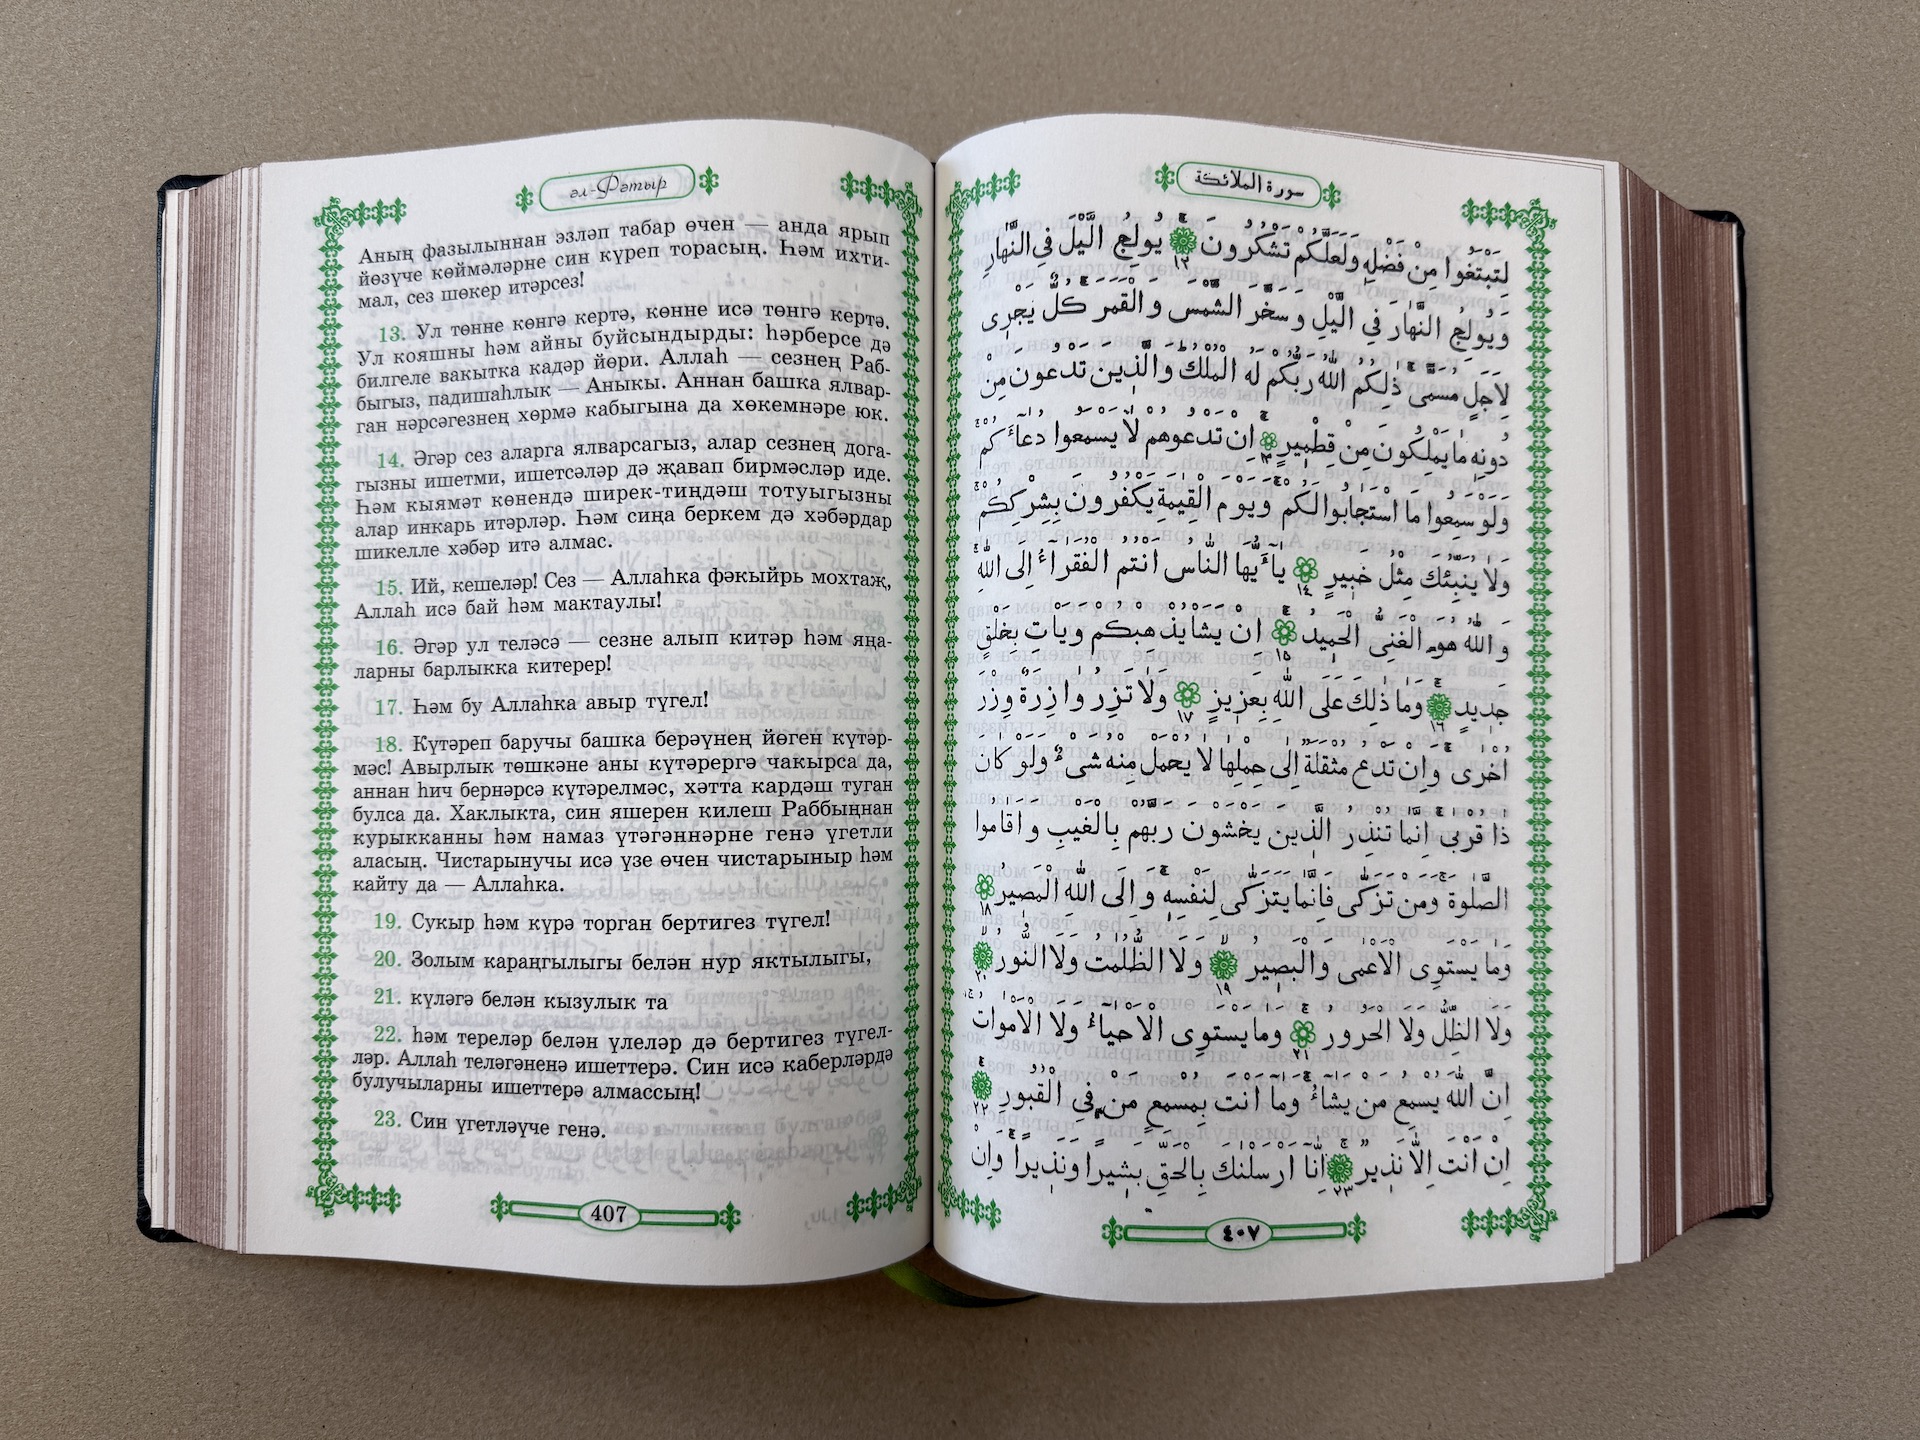 әл-Фәтыр
Аның фазылыннан эзләп табар өчен — анда ярып
йөзүче көймәләрне син күреп торасың. Һәм ихти-
мал, сез шөкер итәрсез!
13. Ул төнне көнгә кертә, көнне исә төнгә кертә.
Ул кояшны һәм айны буйсындырды: һәрберсе дә
билгеле вакытка кадәр йөри. Аллаһ — сезнең Раб-
быгыз, падишаһлык — Аныкы. Аннан башка ялвар-
ган нәрсәгезнең хөрмә кабыгына да хөкемнәре юк.
14. Әгәр сез аларга ялварсагыз, алар сезнең дога-
гызны ишетми, ишетсәләр дә җавап бирмәсләр иде.
Һәм кыямәт көнендә ширек-тиңдәш тотуыгызны
алар инкарь итәрләр. Һәм сиңа беркем дә хәбәрдар
шикелле хәбәр итә алмас.
15. Ий, кешеләр! Сез — Аллаһка фәкыйрь мохтаҗ,
Аллаһ исә бай һәм мактаулы!
16. Әгәр ул теләсә — сезне алып китәр һәм яңа-
ларны барлыкка китерер!
17. Һәм бу Аллаһка авыр түгел!
18. Күтәреп баручы башка берәүнең йөген күтәр-
мәс! Авырлык төшкәне аны күтәрергә чакырса да,
аннан һич бернәрсә күтәрелмәс, хәтта кардәш туган
булса да. Хаклыкта, син яшерен килеш Раббыңнан
курыкканны һәм намаз үтәгәннәрне генә үгетли
аласың. Чистарынучы исә үзе өчен чистарыныр һәм
кайту да — Аллаһка.
19. Сукыр һәм күрә торган бертигез түгел!
20. Золым караңгылыгы белән нур яктылыгы,
21. күләгә белән кызулык та
22. һәм тереләр белән үлеләр дә бертигез түгел-
ләр. Аллаһ теләгәненә ишеттерә. Син исә каберләрдә
булучыларны ишеттерә алмассың!
23. Син үгетләүче генә.
407
سورة الملائكة
لِتَبْتَغُوا مِنْ فَضْلِهِ وَلَعَلَّكُمْ تَشْكُرُونَ ١٢ يُولِجُ الَّيْلَ فِي النَّهَارِ
وَيُولِجُ النَّهَارَ فِي الَّيْلِ وَسَخَّرَ الشَّمْسَ وَالْقَمَرَ كُلٌّ يَجْرِى
لِاَجَلٍ مُسَمًّى ذٰلِكُمُ اللّٰهُ رَبُّكُمْ لَهُ الْمُلْكُ وَالَّذِينَ تَدْعُونَ مِنْ
دُونِهِ مَا يَمْلِكُونَ مِنْ قِطْمِيرٍ ١٣ اِنْ تَدْعُوهُمْ لَا يَسْمَعُوا دُعَاءَكُمْ
وَلَوْ سَمِعُوا مَا اسْتَجَابُوا لَكُمْ وَيَوْمَ الْقِيٰمَةِ يَكْفُرُونَ بِشِرْكِكُمْ
وَلَا يُنَبِّئُكَ مِثْلُ خَبِيرٍ ١٤ يَا اَيُّهَا النَّاسُ اَنْتُمُ الْفُقَرَاءُ اِلَى اللّٰهِ
وَاللّٰهُ هُوَ الْغَنِىُّ الْحَمِيدُ ١٥ اِنْ يَشَأْ يُذْهِبْكُمْ وَيَأْتِ بِخَلْقٍ
جَدِيدٍ ١٦ وَمَا ذٰلِكَ عَلَى اللّٰهِ بِعَزِيزٍ ١٧ وَلَا تَزِرُ وَازِرَةٌ وِزْرَ
اُخْرٰى وَاِنْ تَدْعُ مُثْقَلَةٌ اِلٰى حِمْلِهَا لَا يُحْمَلْ مِنْهُ شَىْءٌ وَلَوْ كَانَ
ذَا قُرْبٰى اِنَّمَا تُنْذِرُ الَّذِينَ يَخْشَوْنَ رَبَّهُمْ بِالْغَيْبِ وَاَقَامُوا
الصَّلٰوةَ وَمَنْ تَزَكّٰى فَاِنَّمَا يَتَزَكّٰى لِنَفْسِهِ وَاِلَى اللّٰهِ الْمَصِيرُ ١٨
وَمَا يَسْتَوِى الْاَعْمٰى وَالْبَصِيرُ ١٩ وَلَا الظُّلُمَاتُ وَلَا النُّورُ ٢٠
وَلَا الظِّلُّ وَلَا الْحَرُورُ ٢١ وَمَا يَسْتَوِى الْاَحْيَاءُ وَلَا الْاَمْوَاتُ
اِنَّ اللّٰهَ يُسْمِعُ مَنْ يَشَاءُ وَمَا اَنْتَ بِمُسْمِعٍ مَنْ فِى الْقُبُورِ ٢٢
اِنْ اَنْتَ اِلَّا نَذِيرٌ ٢٣ اِنَّا اَرْسَلْنَاكَ بِالْحَقِّ بَشِيرًا وَنَذِيرًا وَاِنْ
٤٠٧